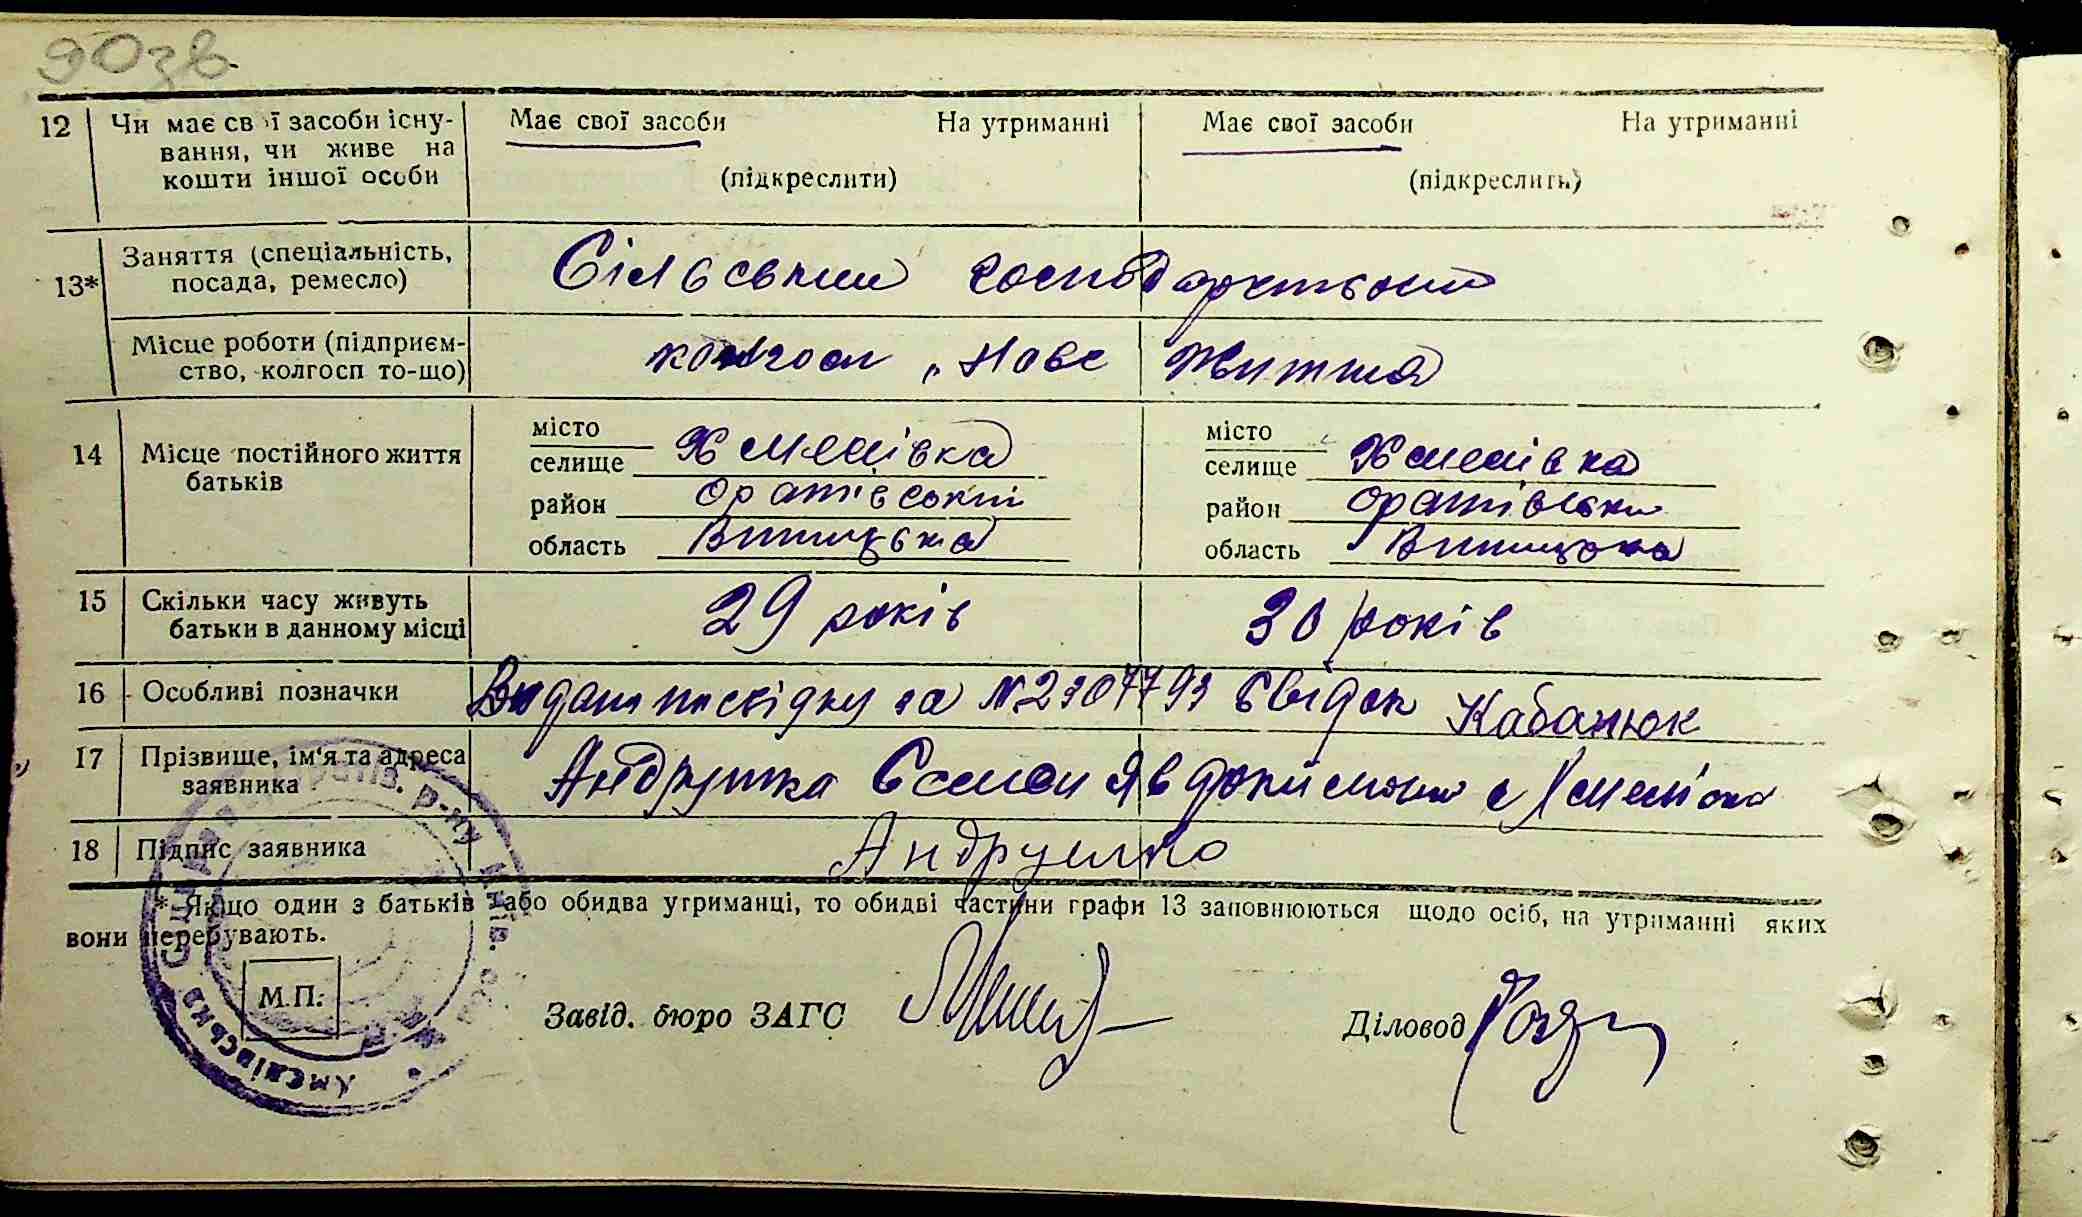 90зв.
12 Чи має свої засоби існу- Має свої засоби На утриманні Має свої засоби На утриманні
вання, чи живе на
кошти іншої особи (підкреслити) (підкреслить)
13* Заняття (спеціальність, Сільським господарством
посада, ремесло)
Місце роботи (підприєм- колгосп „Нове Життя
ство, колгосп то-що)
14 Місце постійного життя батьків
місто
селище Хменівка
район Оратівський
область Віницька
місто
селище Хменівка
район Оратівськи
область Віницька
15 Скільки часу живуть 29 років 30 років
батьки в данному місці
16 Особливі позначки посвідку за № 2307793 Свідок Кабанюк
17 Прізвище, ім'я та адреса Андрушка с Хменівка
заявника
18 Підпис заявника Андрушко
* Якщо один з батьків або обидва утриманці, то обидві частини графи 13 заповнюються щодо осіб, на утриманні яких
вони перебувають.
М.П.
Завід. бюро ЗАГС
Діловод